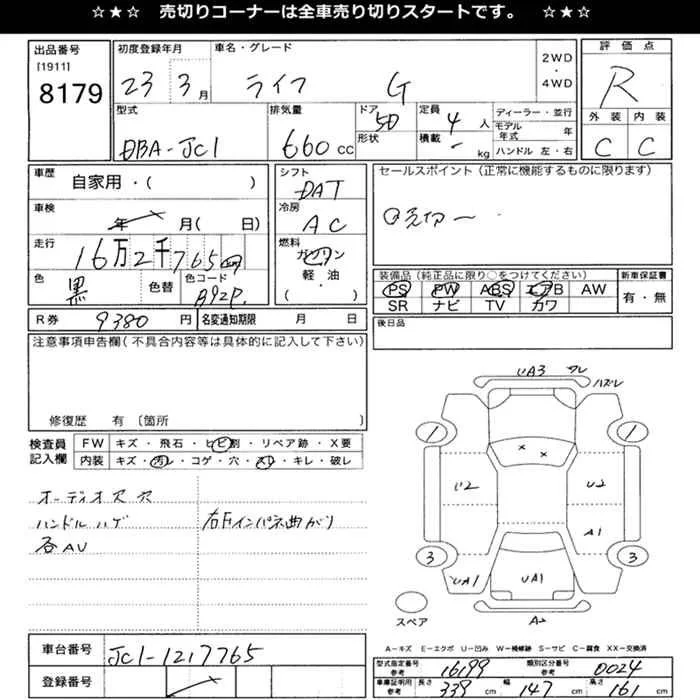 ☆★☆ 売切りコーナーは全車売り切りスタートです。 ☆★☆
出品番号
[1911]
8179
初度登録年月
23 3月
車名・グレード
ライフ G
2WD
・
4WD
評価点
R
外装 内装
C C
型式
DBA-JC1
排気量
660 cc
ドア
5D
形状
定員
4人
積載
- kg
ディーラー・並行
モデル年式 年
ハンドル 左・右
車歴
自家用・( )
シフト
DAT
車検
年 月( 日)
冷房
AC
走行
16万2千765km
燃料
ガソリン
軽・油
・( )
色
黒
色替
色コード
B92P
R券 9380円
名変通知期限 月 日
セールスポイント(正常に機能するものに限ります)
売切
装備品(純正品に限り○をつけてください)
PS PW ABS エアB AW
SR ナビ TV カワ
新車保証書
有・無
後日品
注意事項申告欄(不具合内容等は具体的に記入して下さい)
修復歴 有〔箇所
検査員
記入欄
FW キズ・飛石・ヒビ割・リペア跡・X要
内装 キズ・汚レ・コゲ・穴・スレ・キレ・破レ
オーディオ穴 穴
ハンドル ハゲ
各AU
右Fインパネ曲がり
UA3 ワレ
ハズレ
1 1
× ×
U2 U2
A1
3 3
UA1 UA1
A2
スペア
A−キズ E−エクボ U−凹み W−補修跡 S−サビ C−腐食 XX−交換済
車台番号
JC1-1217765
登録番号
型式指定番号
参考
16199
類別区分番号
参考
0024
車庫証明用
参考
長さ 339 cm
幅 147 cm
高さ 161 cm